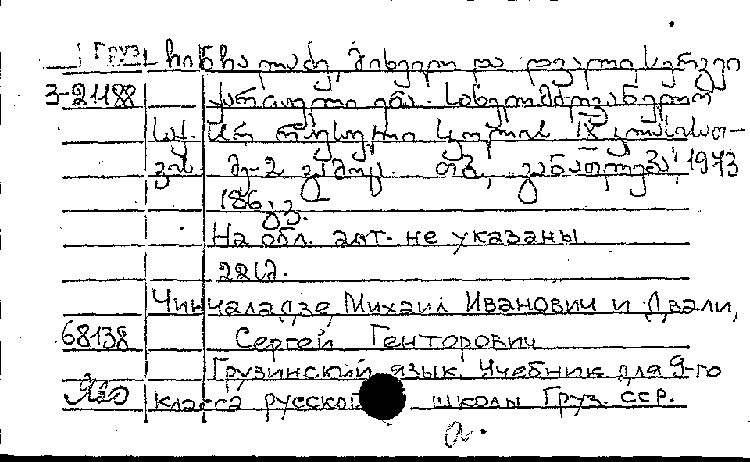 Груз. ჩინჩალაძე, მიხეილ და დვალი სერგეი
3-21188 ქართული ენა. სახელმძღვანელო
სკ. არ რუსული სკოლის IX კლასისათ-
ვის მე-2 გამოც. თბ., განათლება, 1973
186 გვ.
На обл. авт. не указаны
22 к.
Чинчаладзе, Михаил Иванович и Двали,
68138 Сергей Генторович
Грузинский язык. Учебник для 9-го
класса русской школы Груз. ССР.